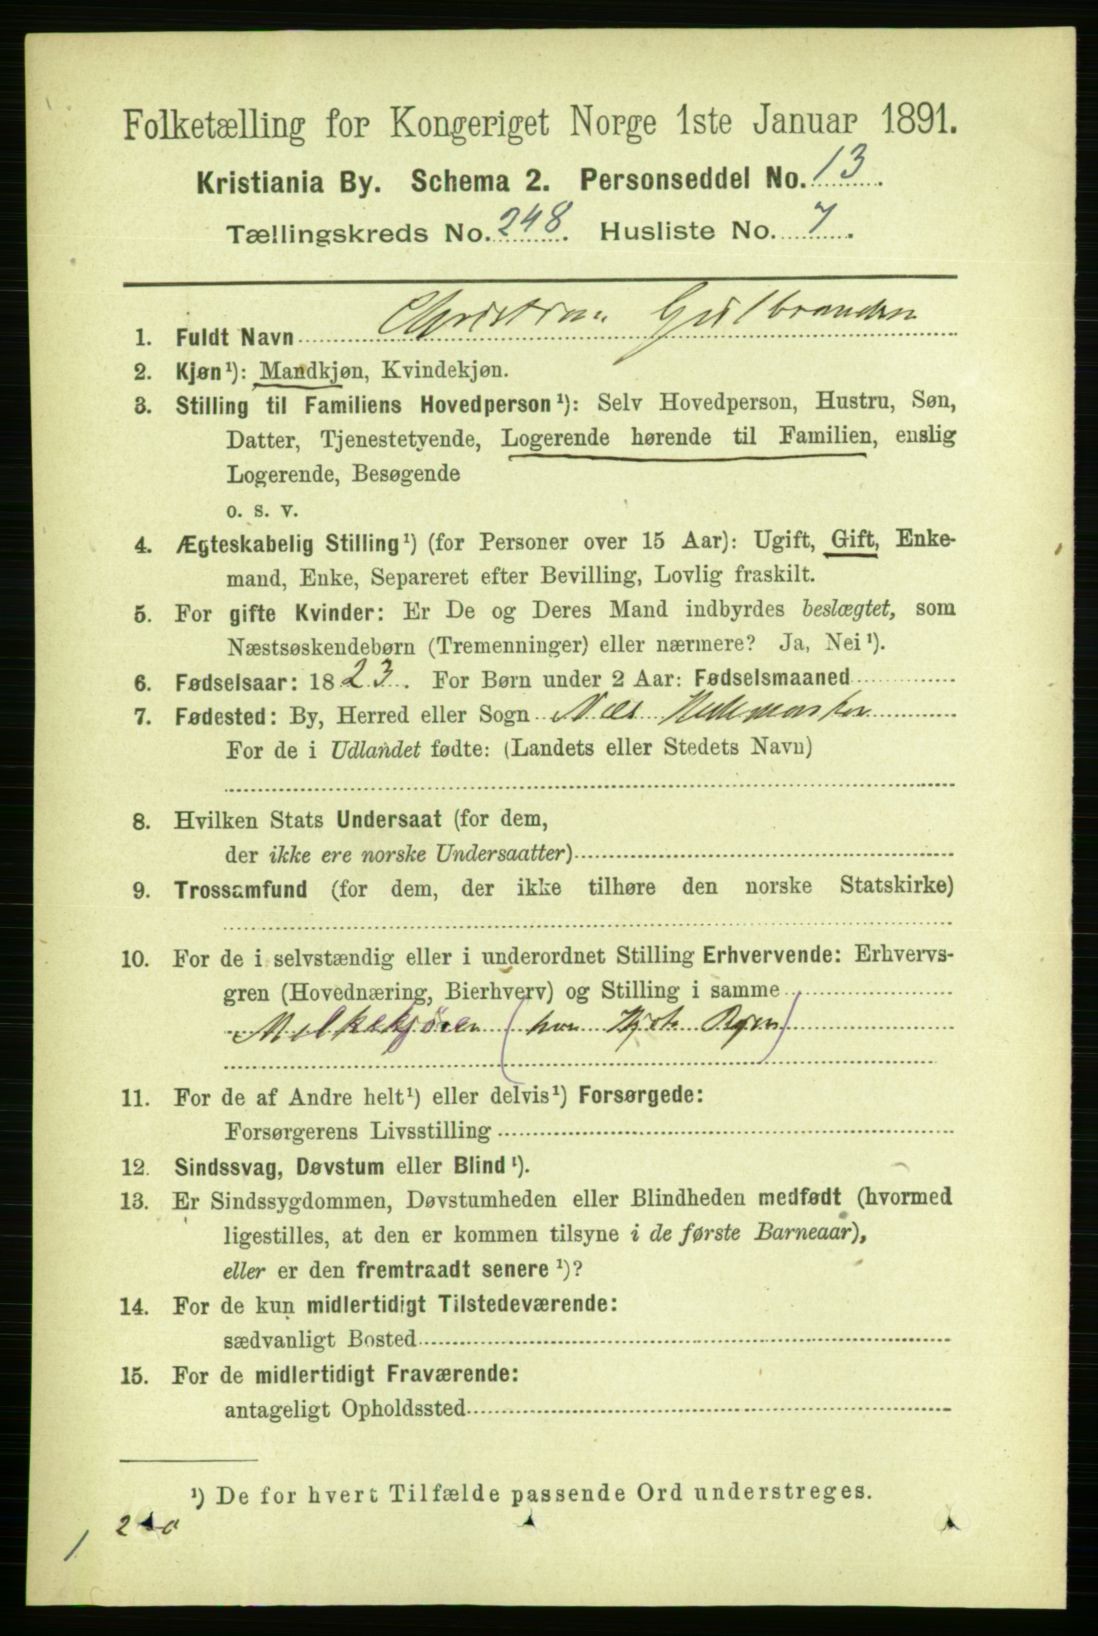 Folketælling for Kongeriget Norge 1ste Januar 1891.
Kristiania By. Schema 2. Personseddel No. 13.
Tællingskreds No. 248. Husliste No. 7.
1. Fuldt Navn Christian Gulbrandsen
2. Kjøn¹): Mandkjøn, Kvindekjøn.
3. Stilling til Familiens Hovedperson¹): Selv Hovedperson, Hustru, Søn,
Datter, Tjenestetyende, Logerende hørende til Familien, enslig
Logerende, Besøgende
o. s. v.
4. Ægteskabelig Stilling¹) (for Personer over 15 Aar): Ugift, Gift, Enke-
mand, Enke, Separeret efter Bevilling, Lovlig fraskilt.
5. For gifte Kvinder: Er De og Deres Mand indbyrdes beslægtet, som
Næstsøskendebørn (Tremenninger) eller nærmere? Ja, Nei¹).
6. Fødselsaar: 1823. For Børn under 2 Aar: Fødselsmaaned
7. Fødested: By, Herred eller Sogn Næs Hedemarken
For de i Udlandet fødte: (Landets eller Stedets Navn)
8. Hvilken Stats Undersaat (for dem,
der ikke ere norske Undersaatter)
9. Trossamfund (for dem, der ikke tilhøre den norske Statskirke)
10. For de i selvstændig eller i underordnet Stilling Erhvervende: Erhvervs-
gren (Hovednæring, Bierhverv) og Stilling i samme
Melkekjører (hos
11. For de af Andre helt¹) eller delvis¹) Forsørgede:
Forsørgerens Livsstilling
12. Sindssvag, Døvstum eller Blind¹).
13. Er Sindssygdommen, Døvstumheden eller Blindheden medfødt (hvormed
ligestilles, at den er kommen tilsyne i de første Barneaar),
eller er den fremtraadt senere¹)?
14. For de kun midlertidigt Tilstedeværende:
sædvanligt Bosted
15. For de midlertidigt Fraværende:
antageligt Opholdssted
¹) De for hvert Tilfælde passende Ord understreges.